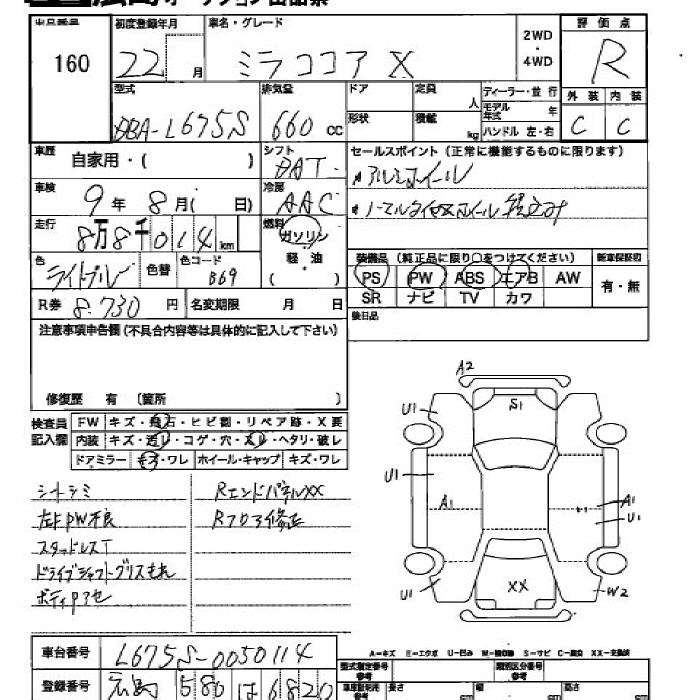 出品番号 初度登録年月 車名・グレード 2WD・4WD 評価点
160 22 月 ミラココア X R
外装 内装
C C
型式 排気量 ドア 定員 人 ディーラー・並行
DBA-L675S 660 cc 形状 積載 kg モデル年式 年
ハンドル 左・右
車歴 自家用・( ) シフト DAT セールスポイント (正常に機能するものに限ります)
車検 9 年 8 月( 日) 冷房 AAC アルミホイール
ノーマルタイヤホイール積込み
走行 8万8千014 km 燃料 ガソリン 軽油 ( )
色 ライトブルー 色替 色コード B69
装備品 (純正品に限り○をつけてください) 新車保証書
PS PW ABS エアB AW 有・無
SR ナビ TV カワ
R券 8.730 円 名変期限 月 日
後日品
注意事項申告欄 (不具合内容等は具体的に記入して下さい)
修復歴 有 (箇所 )
検査員記入欄 FW キズ・飛石・ヒビ割・リペア跡・X要
内装 キズ・汚レ・コゲ・穴・スレ・ヘタリ・破レ
ドアミラー キズ・ワレ ホイール・キャップ キズ・ワレ
シートシミ RエンドパネルXX
左FPW不良 Rフロア修正
スタッドレスT
ドライブシャフトグリスもれ
ボディ
A2
U1 S1
U1 A1 A1
U1
U1 XX W2
A-キズ E-エクボ U-凹み S-サビ XX-交換済
車台番号 L675S-0050114
登録番号 広島 580 は 6820
型式指定番号 参考 類別区分番号 参考
長さ cm 幅 cm 高さ cm